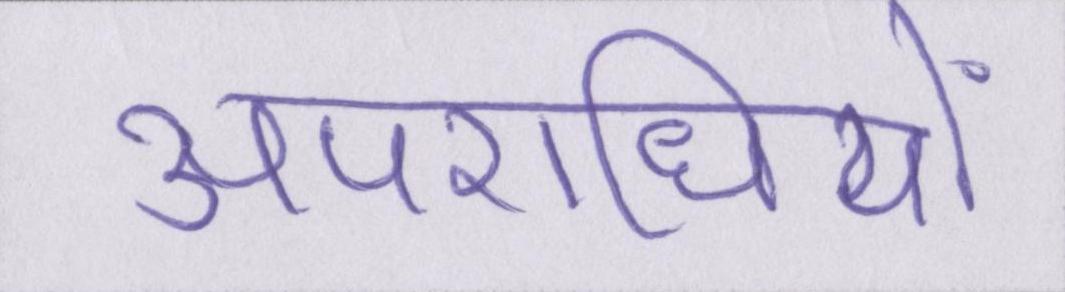 अपराधियों